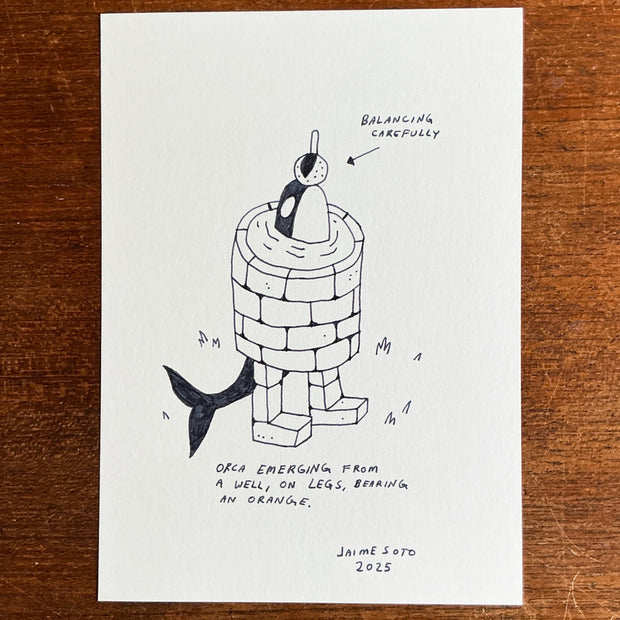 BALANCING
CAREFULLY
ORCA EMERGING FROM
A WELL, ON LEGS, BEARING
AN ORANGE.
JAIME SOTO
2025